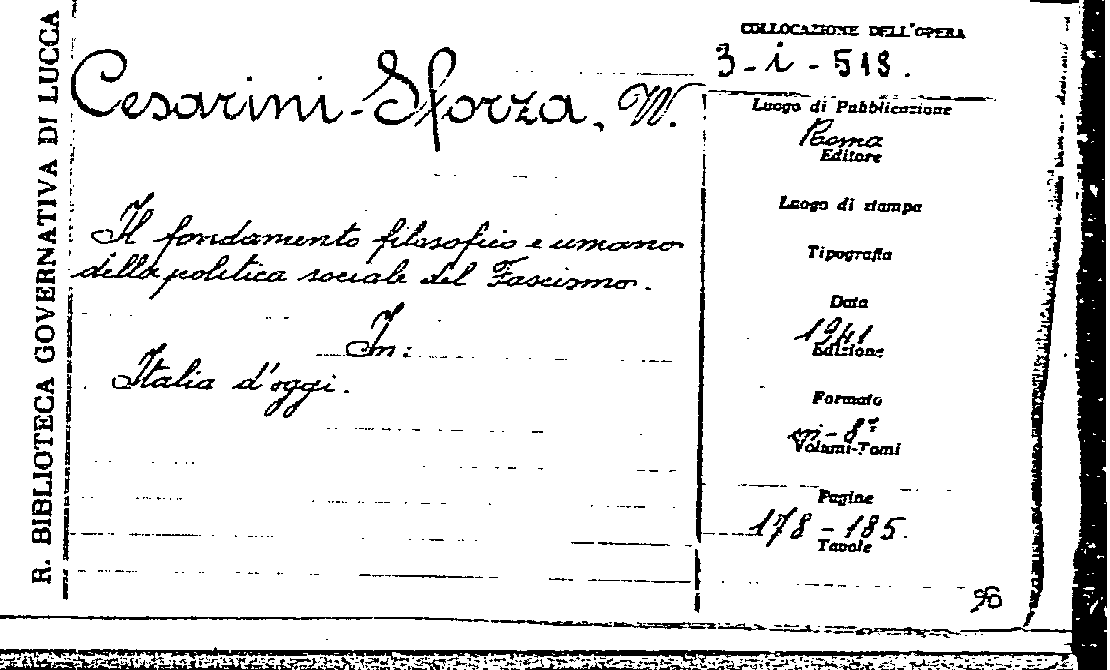 R. BIBLIOTECA GOVERNATIVA DI LUCCA
Cesarini-Sforza, W.
Il fondamento filosofico e umano
della politica sociale del Fascismo.
In:
Italia d'oggi.
COLLOCAZIONE DELL'OPERA
3-i-518.
Luogo di Pubblicazione
Roma
Editore
Luogo di stampa
Tipografia
Data
1941
Edizione
Formato
in-8°
Volumi-Tomi
Pagine
178-185.
Tavole